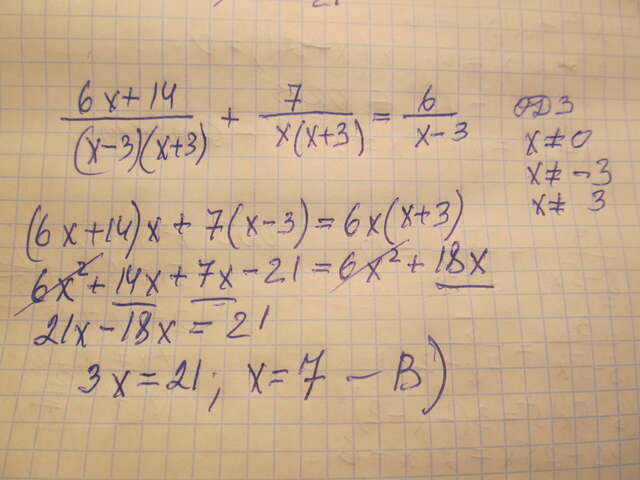 (6x+14)/((x-3)(x+3)) + 7/(x(x+3)) = 6/(x-3)
ОДЗ
x≠0
x≠-3
x≠3
(6x+14)x+7(x-3)=6x(x+3)
6x²+14x+7x-21=6x²+18x
21x-18x=21
3x=21; x=7 - В)